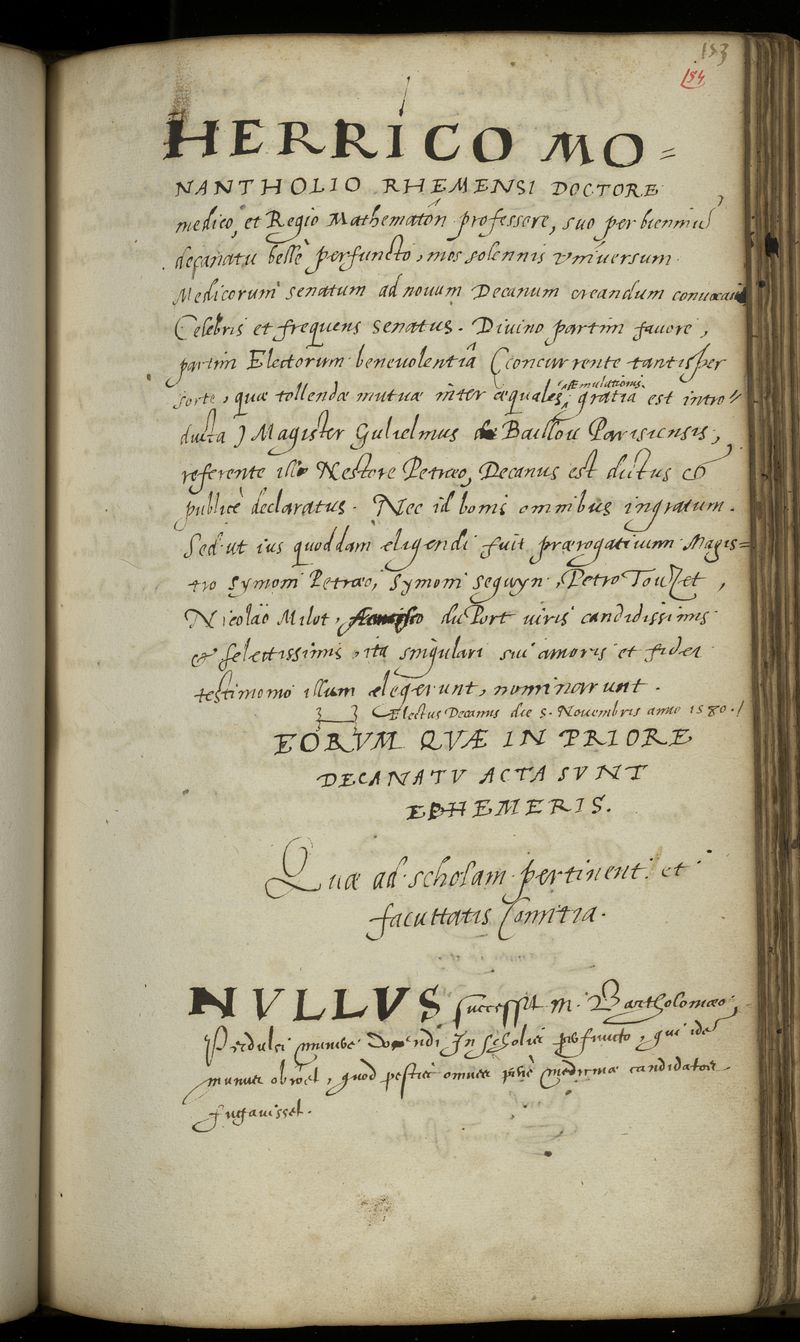 153
154
HERRICO MO=
NANTHOLIO RHEMENSI DOCTORE
medico, et Regio Mathematῶn professore, suo per bienniũ
decanatu bellè perfuncto, mos solennis vniuersum
Medicorum senatum ad nouum Decanum creandum conuocauit
Celebris et frequens senatus. Diuino partim fauore,
partim Electorum beneuolentiâ (concurrente tantisper
sorte, quæ tollendæ mutuæ inter æquales æmulationis gratia est intro=
ducta) Magister Gulielmus de Baillou Parisiensis,
referente illo Nestore Petræo, Decanus est dictus &
publicè declaratus. Nec id bonis omnibus ingratum.
Sed ut ius quoddam eligendi fuit prærogatiuum Magis=
tro Symoni Petræo, Symoni Seguyn, Petro Touzet,
Nicolao Milot, du Port uiris candidissimis
& selectissimis, ita singulari sui amoris et fidei
testimonio illum elegerunt, nominarunt.
Electus Decanus die 5. Nouembris anno 1580.
EORVM QVÆ IN PRIORE
DECANATV ACTA SVNT
EPHEMERIS.
Quæ ad scholam pertinent et
facultatis Comitia.
NVLLVS successit M. Bartholomæo
Perdulci munere docendi In scholis perfuncto, qui idẽ
munus obiret, quod pestis omnes penè medicinæ candidatos
fugauisset.